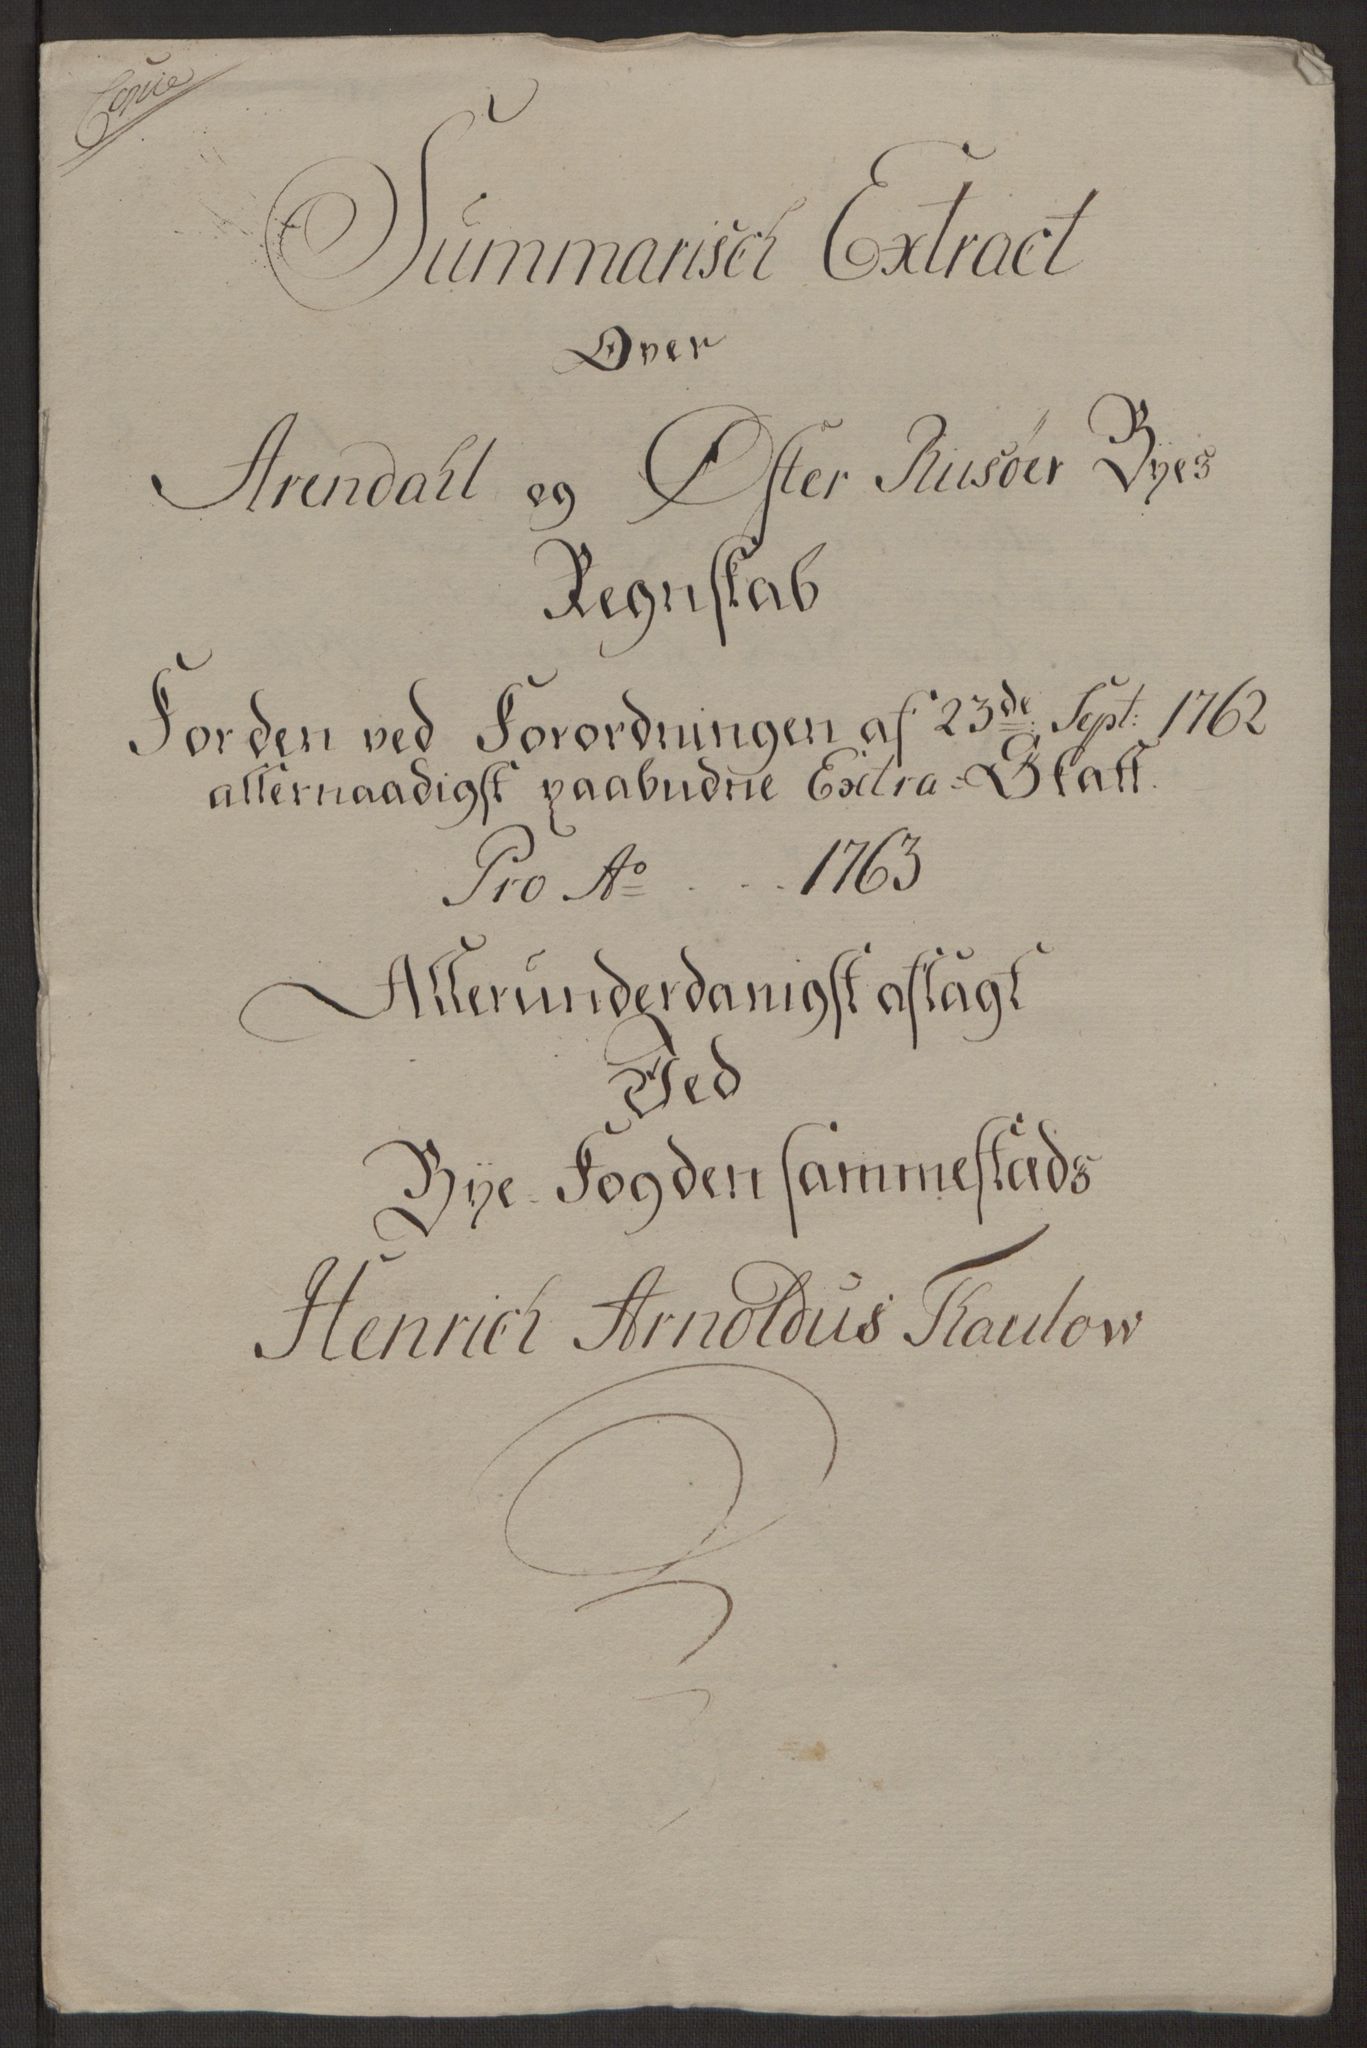 Copie
Summarisch Extract
Over
Arendahl og Øster Riisöer Byes
Regnskab
For den ved Forordningen af 23de Sept: 1762
allernaadigst paabudne Extra-Skatt.
Pro Ao . . . 1763
Allerunderdanigst aflagt
Ved
Bye-Fogden sammestæds
Henrich Arnoldus Thaulow